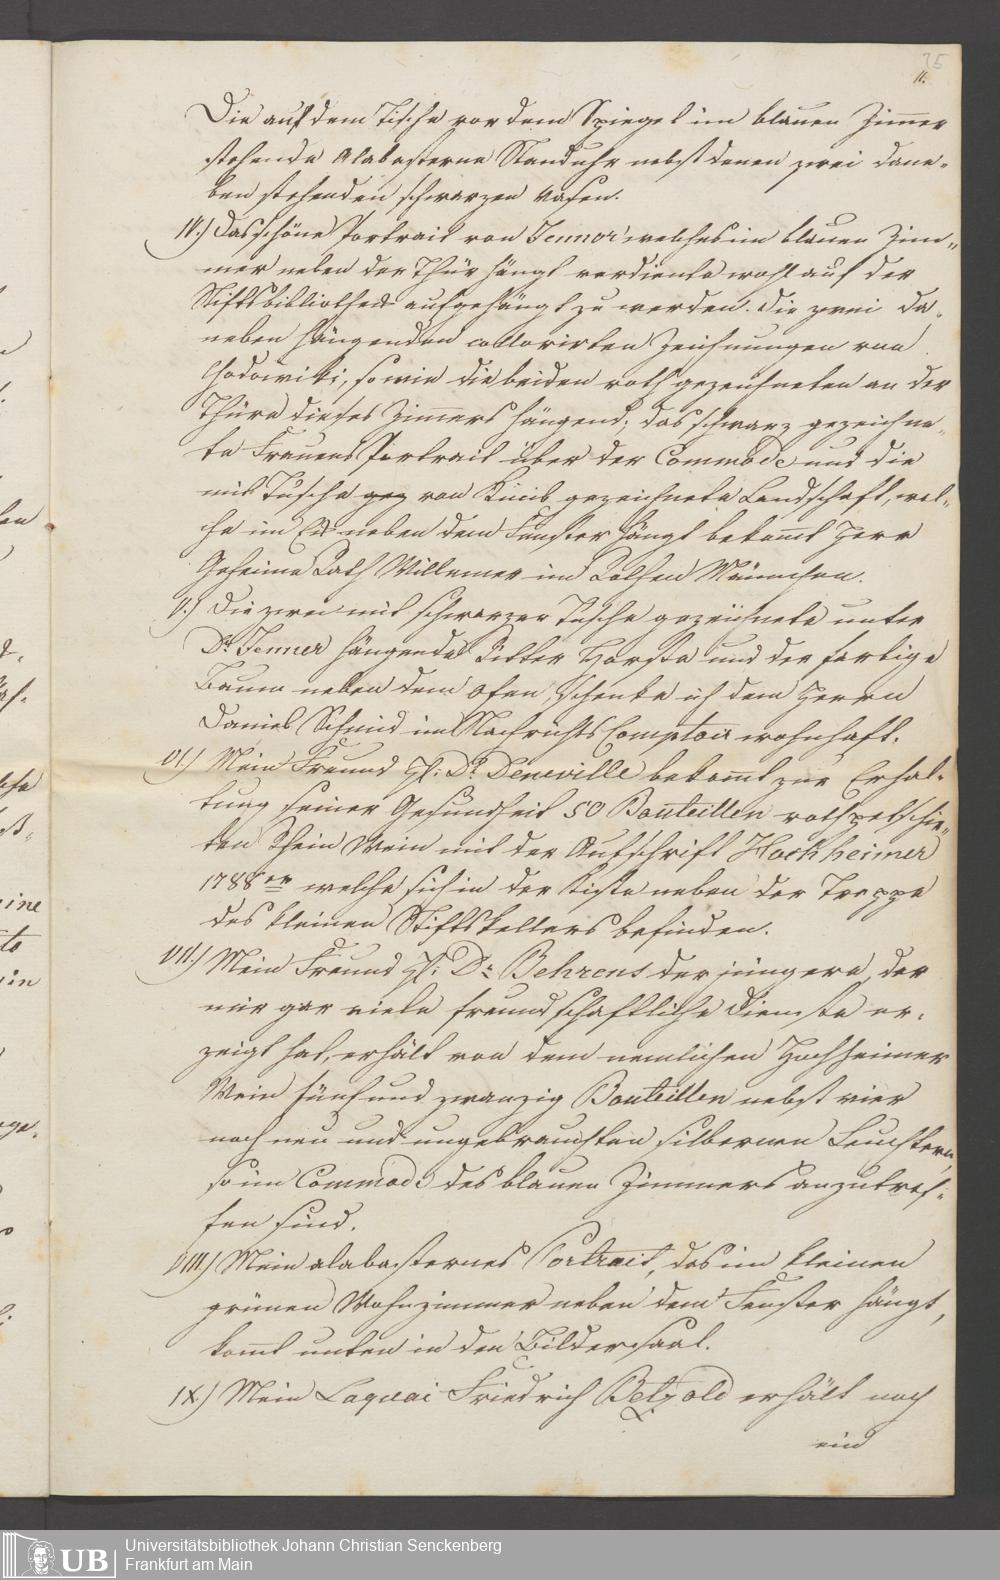 25
11.
Die auf dem Tische vor dem Spiegel im blauen Zimmer
stehende Alabasterne Standuhr nebst denen zwei dane-
ben stehenden schwarzen Vasen.
IV.) Das schöne Portrait von Jennor welches im blauen Zim-
mer neben der Thür hängt verdiente wohl auf der
Stiftsbibliothek aufgehängt zu werden. Die zwei da-
neben hängenden collorirten Zeichnungen von
Chodowiki, so wie die beiden roth gezeichneten an der
Thüre dieses Zimmers hängend; das schwarz gezeichne-
te Frauens Portrait über der Commode und die
mit Tusche gez von gezeichnete Landschaft, wel-
che im Eck neben dem Fenster hängt bekomt Herr
Geheime Rath Willemer im Rothen Männchen.
V.) Die zwei mit schwarzer Tusche gezeichnete unter
Dr. Jenner hängende Ritter Horste und der farbige
Baum neben dem Ofen, schenke ich dem Herrn
Daniel Schmid im Nachrichts Comptoir wohnhaft.
VI.) Mein Freund H: Dr. Deneville bekomt zur Erhal-
tung seiner Gesundheit 50 Bouteillen roth petschir-
ten Rhein Wein mit der Aufschrift Hochheimer
1788er welche sich in der Kiste neben der Treppe
des kleinen Stiftskellers befinden.
VII.) Mein Freund H: Dr. Behrens der jüngere, der
mir gar viele freundschaftliche Dienste er-
zeigt hat, erhält von dem nemlichen Hochheimer
Wein fünf und zwanzig Bouteillen nebst vier
noch neu und ungebrauchten silbernen Leuchtern,
so im Commode des blauen Zimmers anzutref-
fen sind.
VIII.) Mein alabasternes Portrait, das im kleinen
grünen Wohnzimmer neben dem Fenster hängt,
komt unten in den Bildersaal.
IX.) Mein Laquai Friedrich Betzold erhält noch
ein
UB
Universitätsbibliothek Johann Christian Senckenberg
Frankfurt am Main